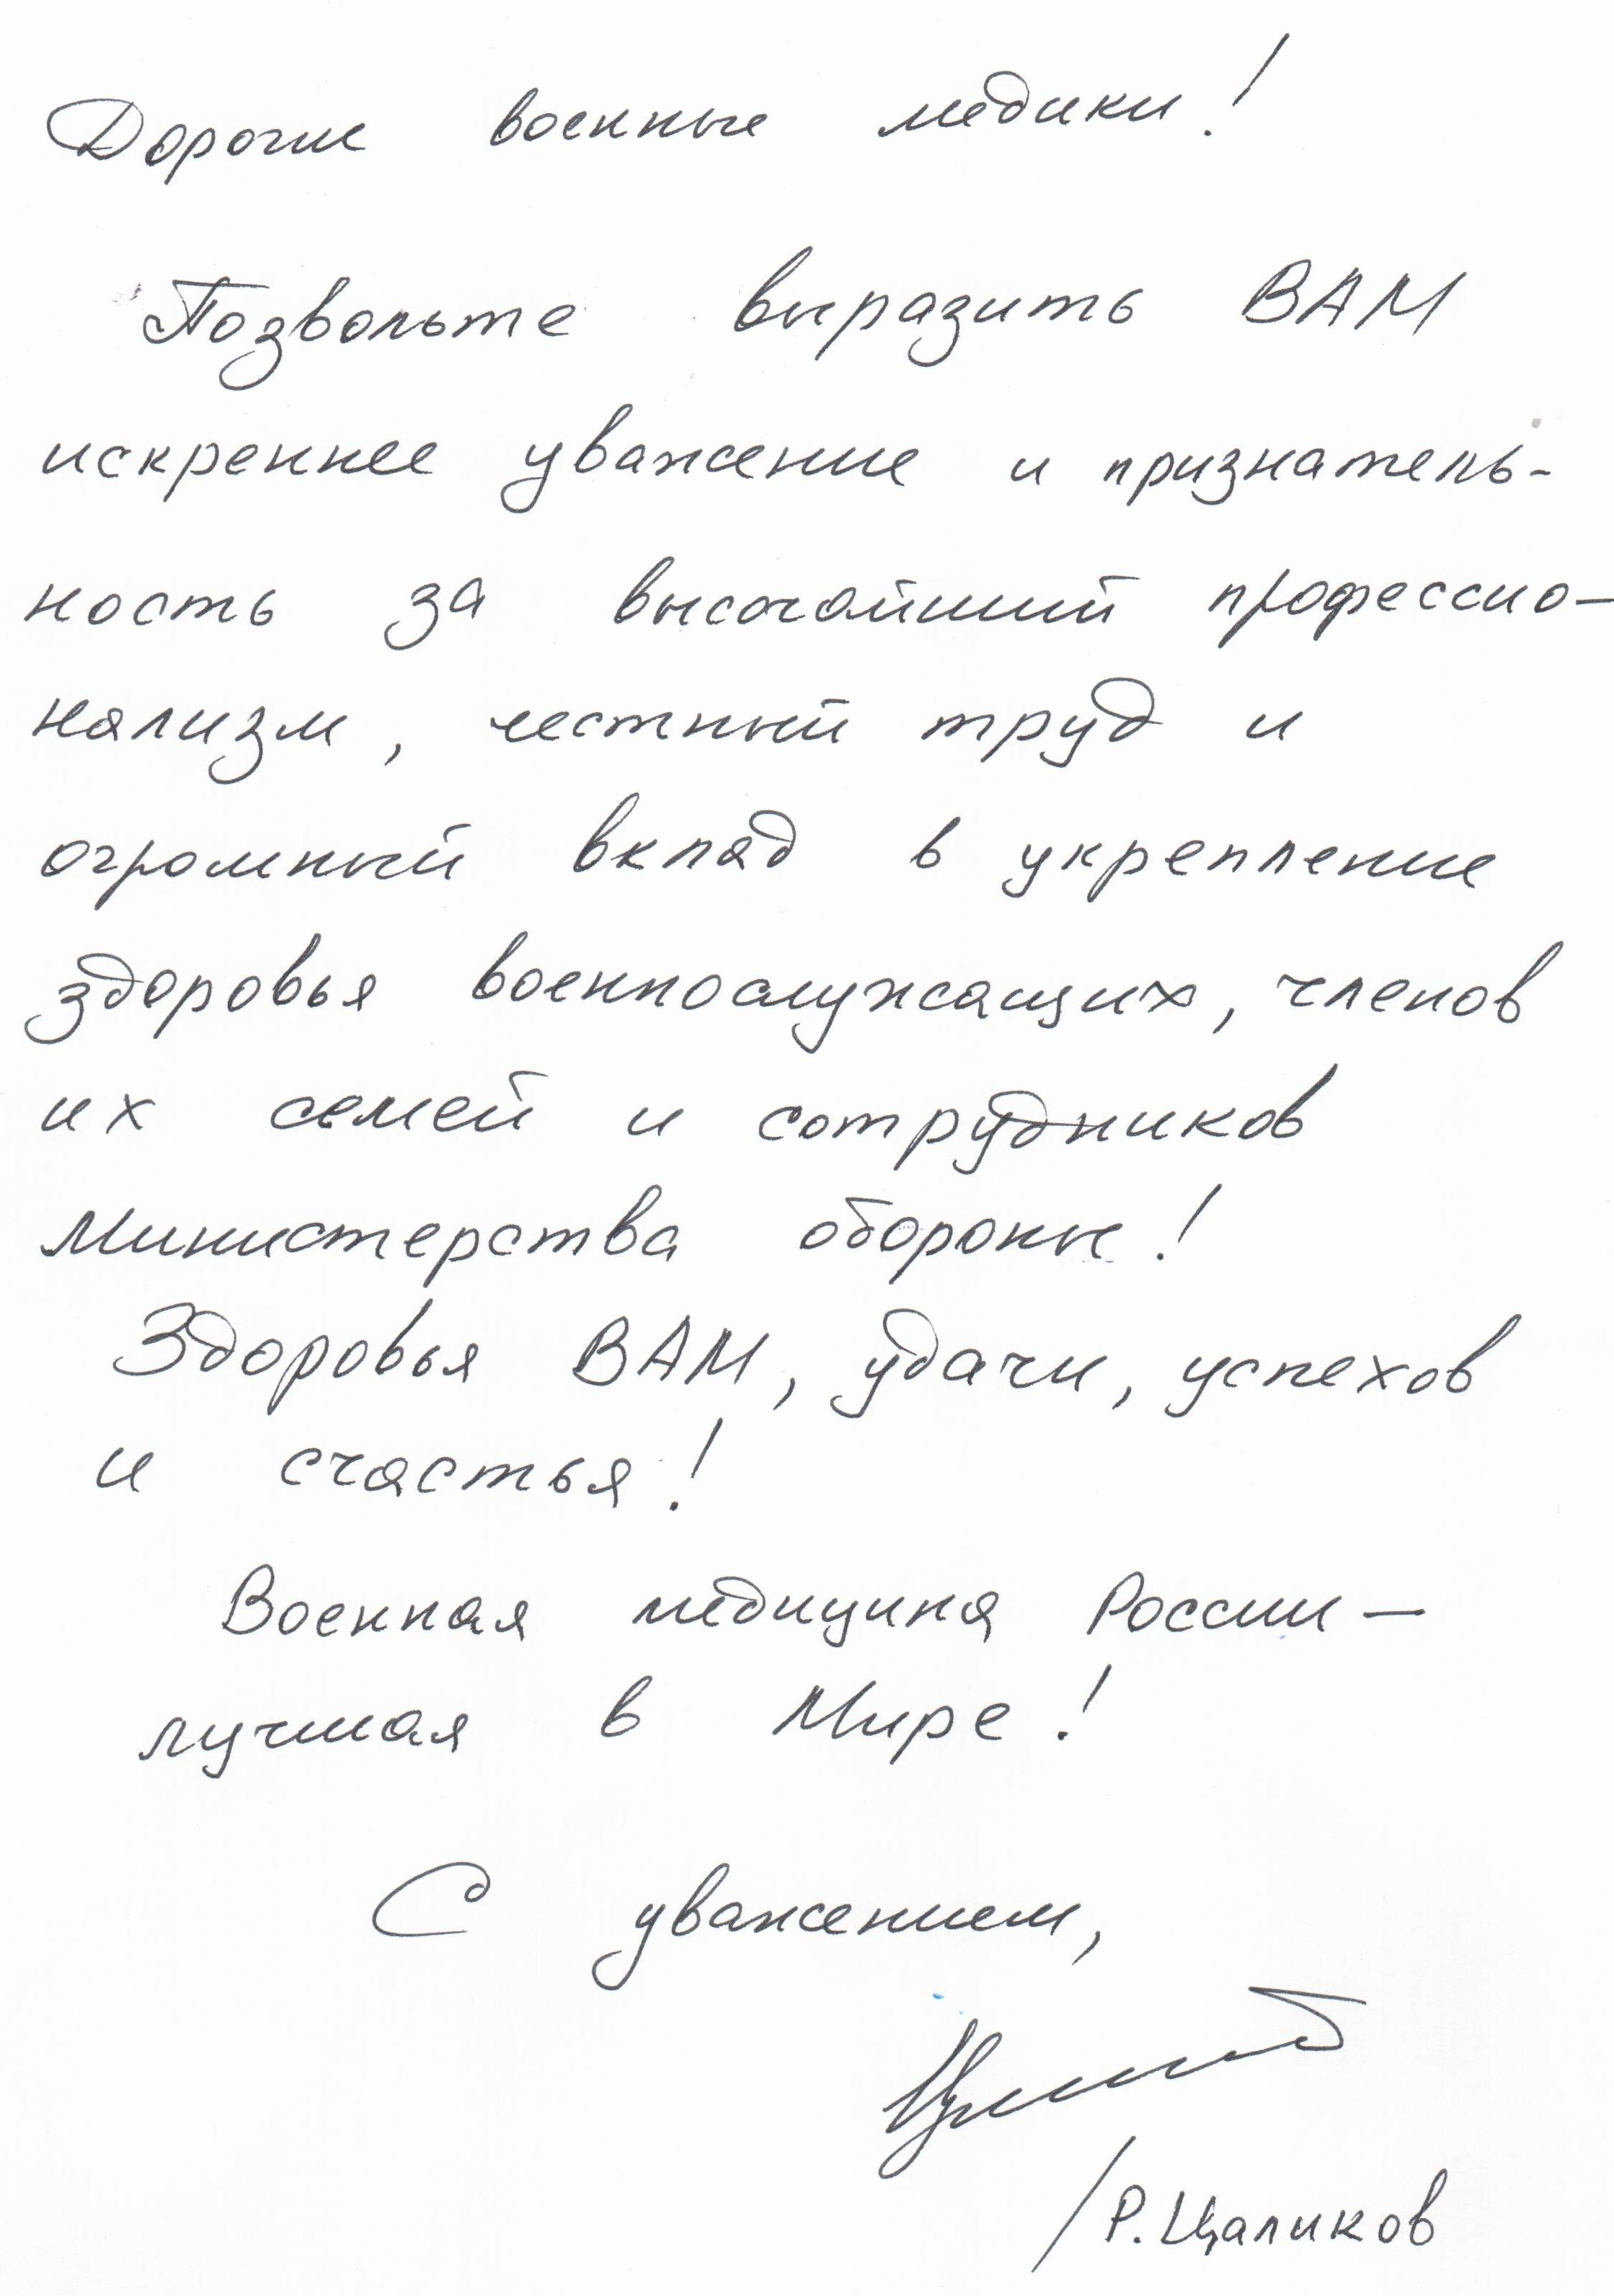 Дорогие военные медики!
Позвольте выразить ВАМ
искреннее уважение и признатель-
ность за высочайший профессио-
нализм, честный труд и
огромный вклад в укрепление
здоровья военнослужащих, членов
их семей и сотрудников
Министерства обороны!
Здоровья ВАМ, удачи, успехов
и счастья!
Военная медицина России —
лучшая в Мире!
С уважением,
/Р. Цаликов